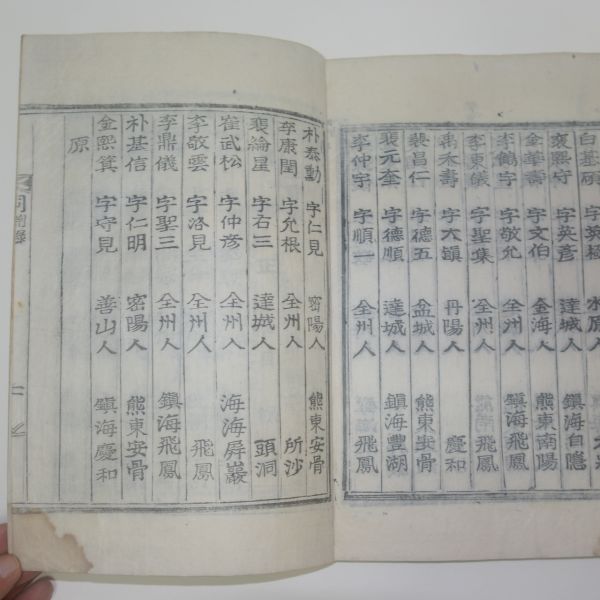 字英極 水原人
裵熙守 字英彦 達城人 鎭海自隱
金華壽 字文伯 金海人 熊東南陽
李鶴宇 字敬允 全州人 鎭海飛鳳
李東儀 字聖集 全州人 熊南飛鳳
禹禾壽 字大韻 丹陽人 慶和
裴昌仁 字德五 盆城人 熊東安骨
裵元奎 字德順 達城人 鎭海豊湖
李仲宇 字順一 全州人 飛鳳
朴泰勳 字仁見 密陽人 熊東安骨
李康閏 字允根 全州人 所沙
裵綸星 字右三 達城人 頭洞
崔武松 字仲彦 全州人 海海屏巖
李敬雲 字洛見 全州人 飛鳳
李鼎儀 字聖三 全州人 鎭海飛鳳
朴基信 字仁明 密陽人 熊東安骨
金熙箕 字守見 善山人 鎭海慶和
原